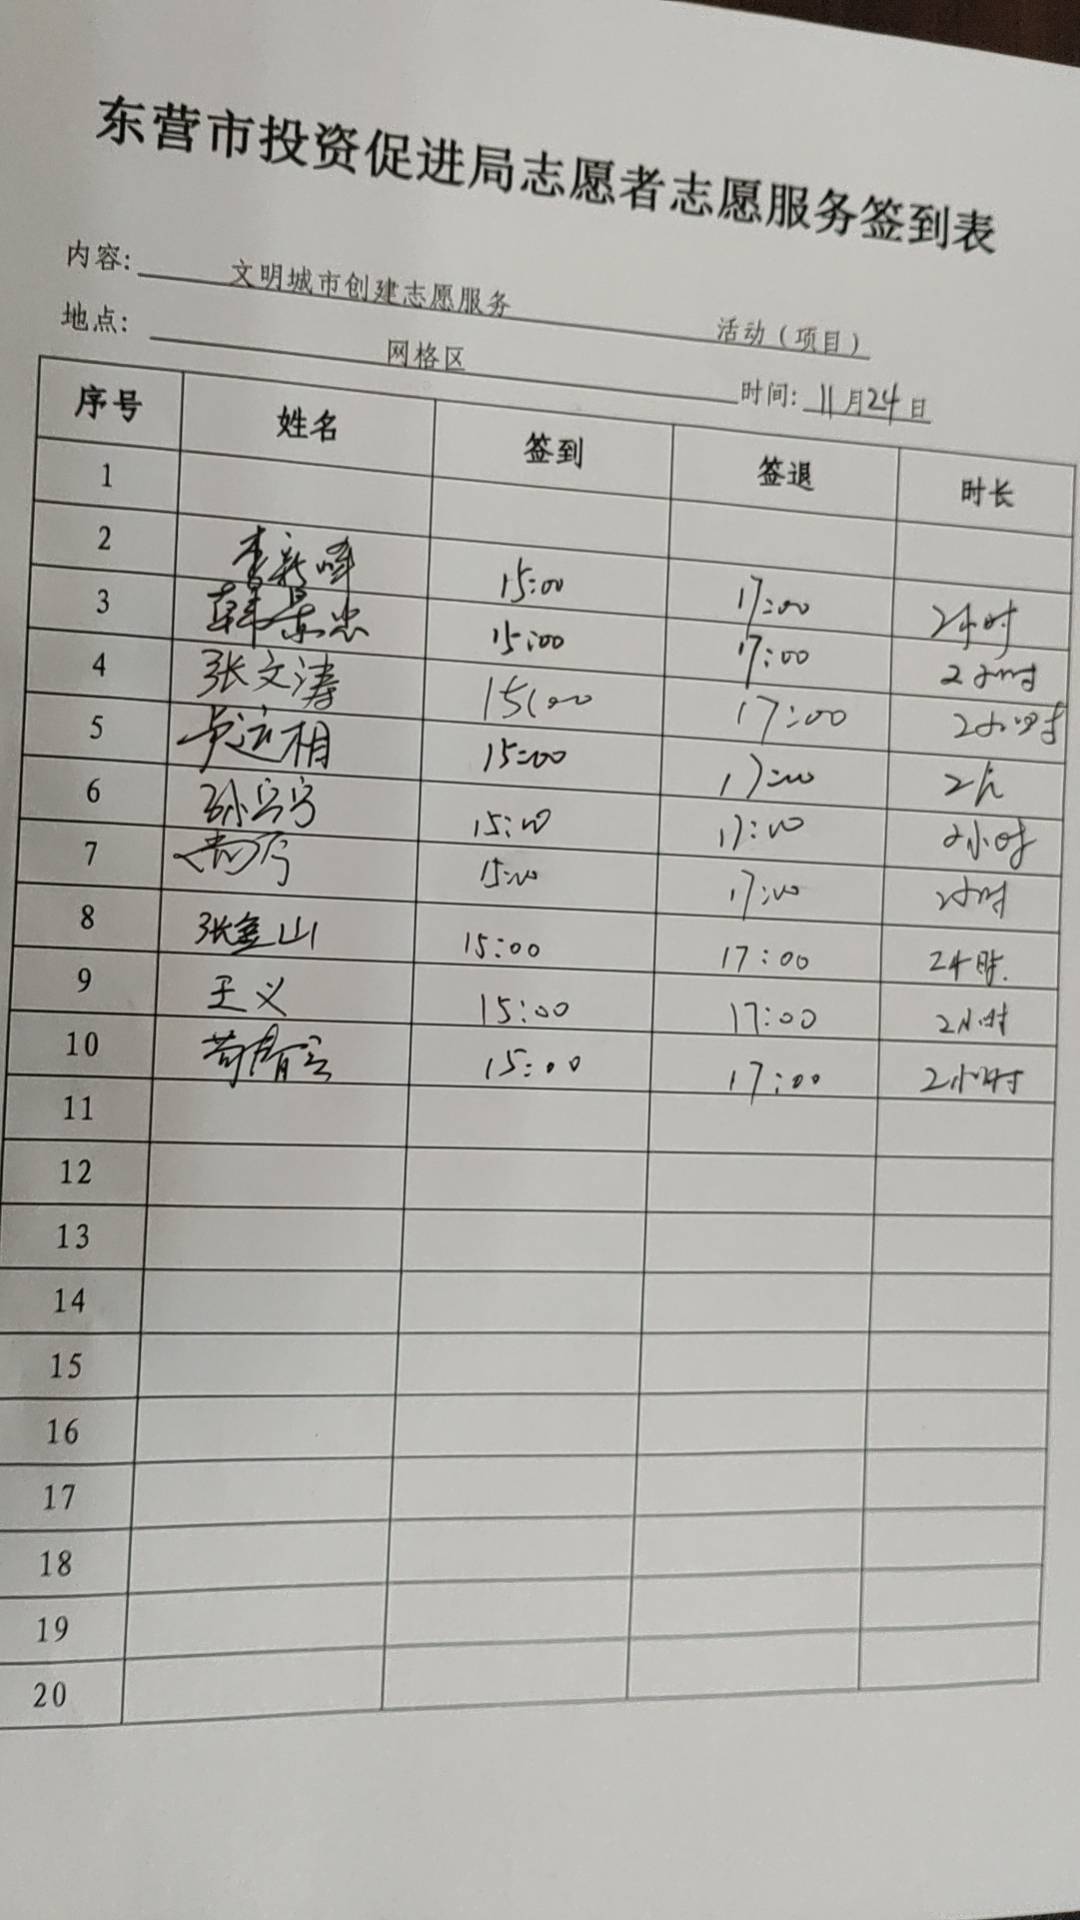 东营市投资促进局志愿者志愿服务签到表
内容: 文明城市创建志愿服务 活动（项目）
地点: 网格区 时间: 11月24日
序号 姓名 签到 签退 时长
1
2 李新峰 15:00 17:00 2小时
3 韩景忠 15:00 17:00 2小时
4 张文涛 15:00 17:00 2小时
5 15:00 17:00
6 15:00 17:00 2小时
7 15:00 17:00 2小时
8 张金山 15:00 17:00 2小时.
9 王义 15:00 17:00 2小时
10 15:00 17:00 2小时
11
12
13
14
15
16
17
18
19
20